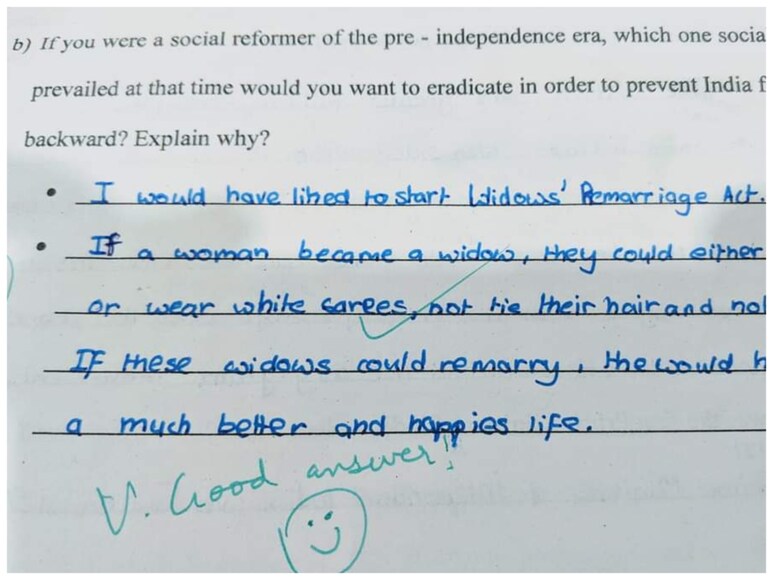 b) If you were a social reformer of the pre - independence era, which one socia
prevailed at that time would you want to eradicate in order to prevent India f
backward? Explain why?
• I would have liked to start Widows' Remarriage Act.
• If a woman became a widow, they could either
or wear white sarees, not tie their hair and not
If these widows could remarry, the would h
a much better and happies life.
V. Good answer!